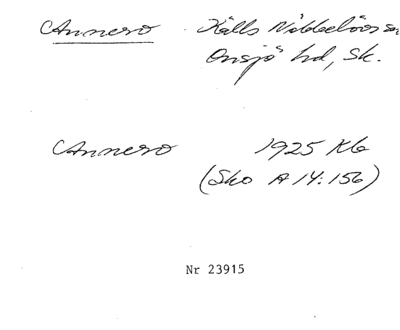 Annero Källs Nöbbelövs sn,
Onsjö hd, Sk.
Annero 1925 Kb
(Sko A 14:156)
Nr 23915